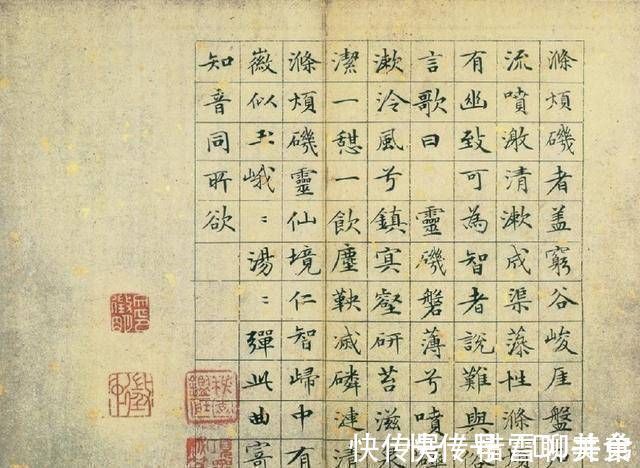 滌煩磯者盖窮谷峻厓盤
流噴激清漱成渠藻性滌
有幽致可為智者說難與
言歌曰靈磯磐薄兮噴
漱泠風兮鎮冥壑研苔滋
潔一憩一飲塵鞅滅磷漣清
滌煩磯靈仙境仁智歸中有
徽似玉峨〻湯〻彈此曲寄
知音同所欲